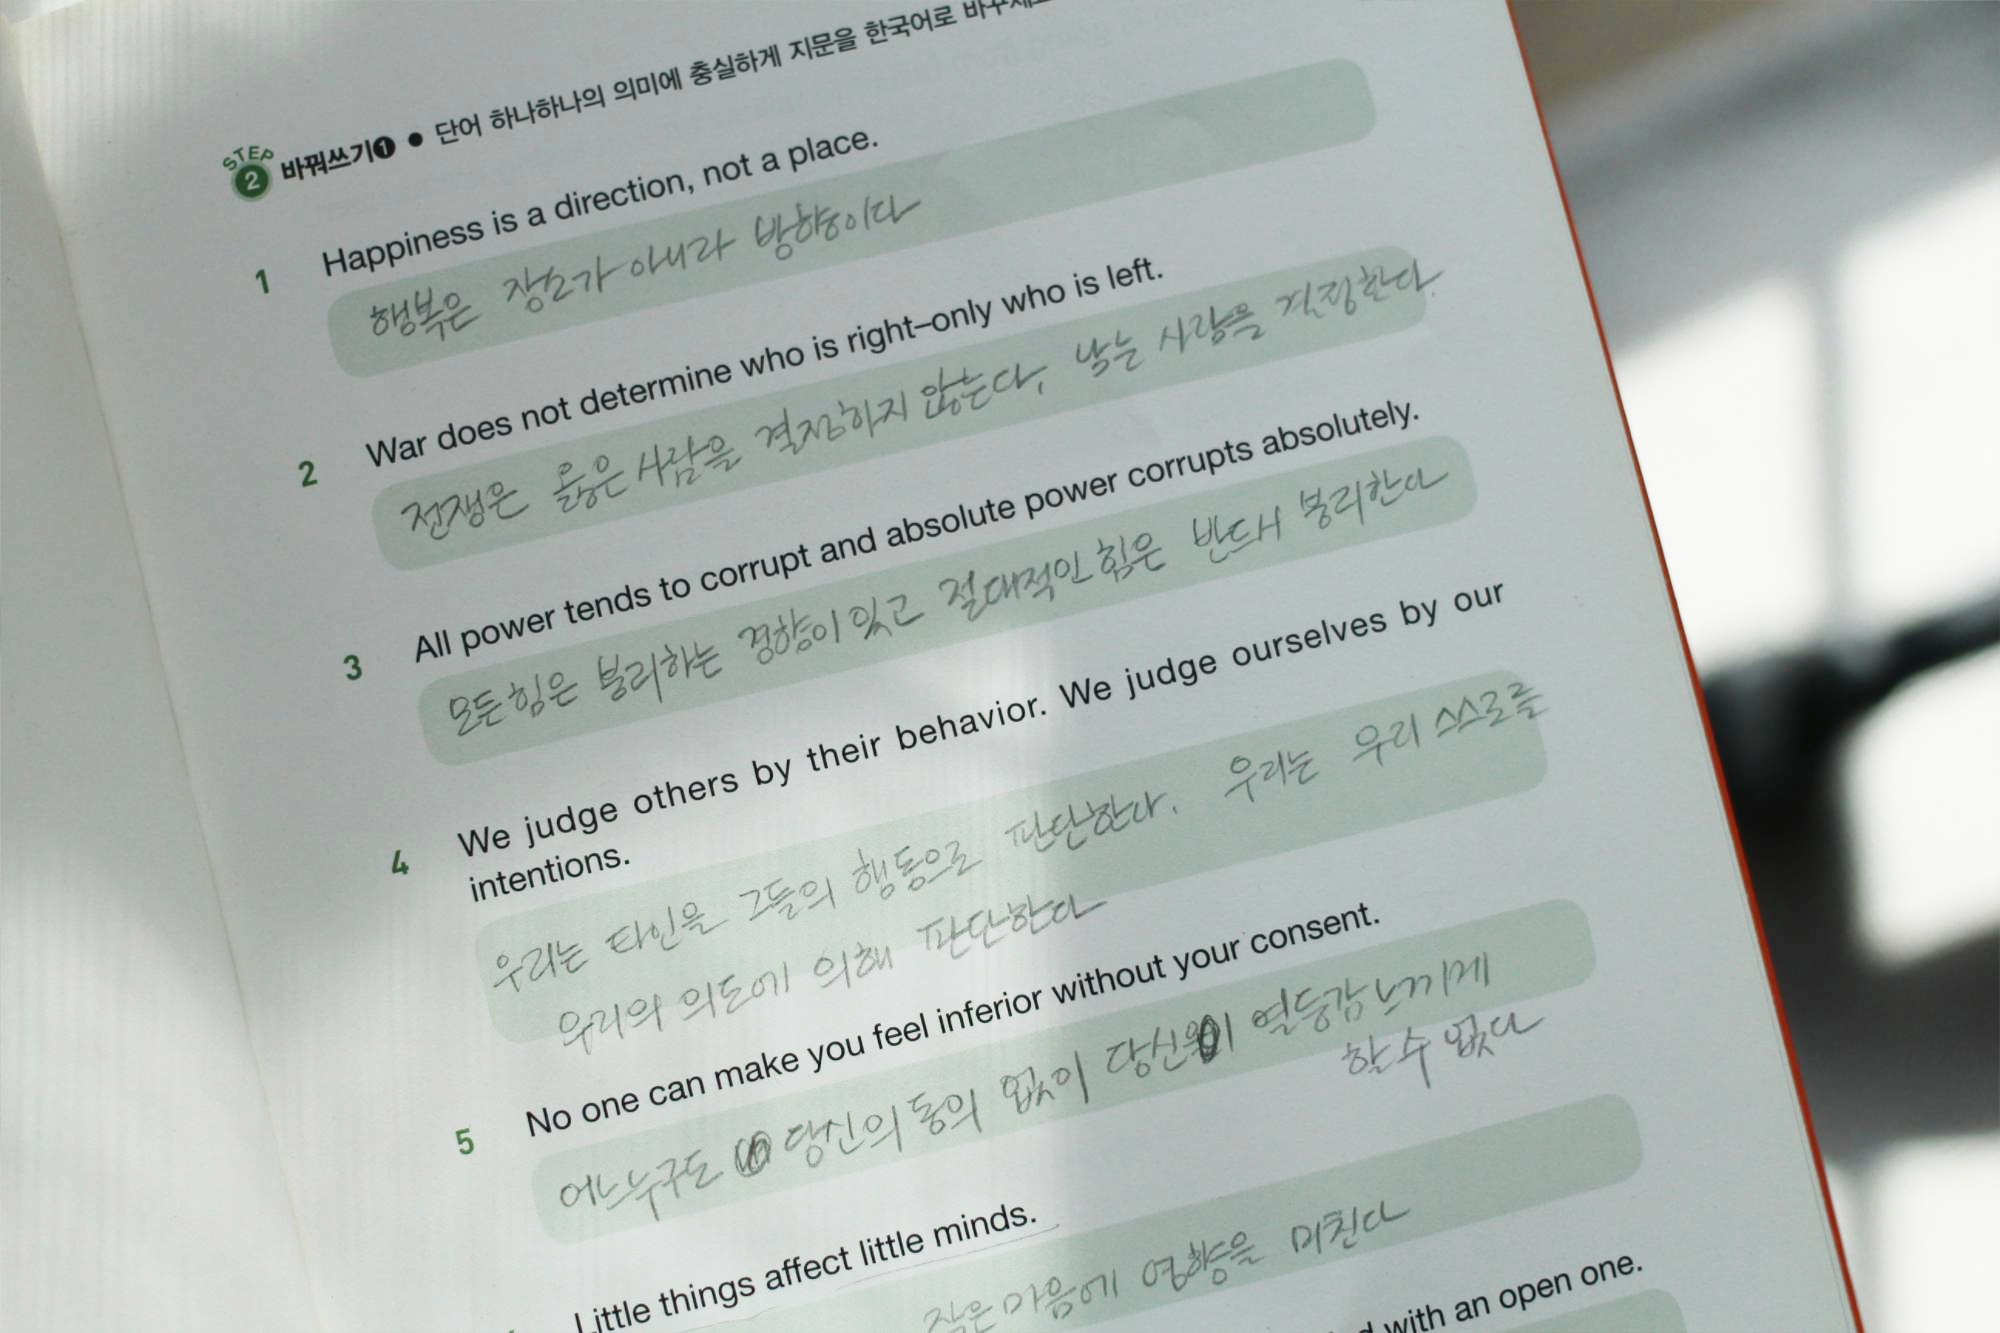 STEP 2 바꿔쓰기❶ ● 단어 하나하나의 의미에 충실하게 지문을 한국어로
1 Happiness is a direction, not a place.
행복은 장소가 아니라 방향이다
2 War does not determine who is right–only who is left.
전쟁은 옳은 사람을 결정하지 않는다, 남는 사람을 결정한다.
3 All power tends to corrupt and absolute power corrupts absolutely.
모든 힘은 불리하는 경향이 있고 절대적인 힘은 반드시 불리한다
4 We judge others by their behavior. We judge ourselves by our
intentions.
우리는 타인을 그들의 행동으로 판단한다. 우리는 우리 스스로를
우리의 의도에 의해 판단한다
5 No one can make you feel inferior without your consent.
어느누구도 당신의 동의 없이 당신이 열등감 느끼게
할 수 없다
Little things affect little minds.
작은 마음에 영향을 미친다
with an open one.